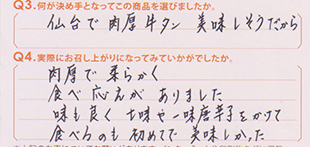 Q3.何が決め手となってこの商品を選びましたか。
仙台で肉厚牛タン 美味しそうだから
Q4.実際にお召し上がりになってみていかがでしたか。
肉厚で柔らかく
食べ応えがありました
味も良く 七味や一味唐辛子をかけて
食べるのも初めてで美味しかった